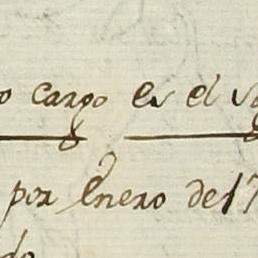 o cargo es el
por Enero de 17
do